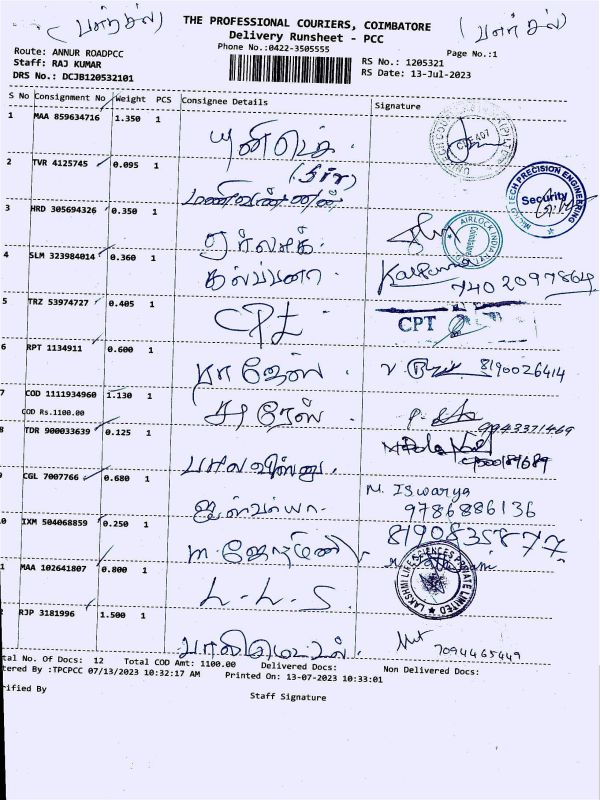 THE PROFESSIONAL COURIERS, COIMBATORE
Delivery Runsheet - PCC
Phone No.:0422-3505555
Page No.:1
Route: ANNUR ROADPCC
Staff: RAJ KUMAR
DRS No.: DCJB120532101
RS No.: 1205321
RS Date: 13-Jul-2023
S No Consignment No Weight PCS Consignee Details Signature
1 MAA 859634716 1.350 1
2 TVR 4125745 0.095 1 (Sir)
மணிவண்ணன்
MICRO TECH PRECISION ENGINEERING Security
3 HRD 305694326 0.350 1
AIRLOCK INDIA
4 SLM 323984014 0.360 1 கல்பனா Kalpana
7402097864
5 TRZ 53974727 0.405 1 CPT CPT
6 RPT 1134911 0.600 1 ராஜேஸ் 8190026414
7 COD 1111934960 1.130 1 சுரேஸ் 9943371469
COD Rs.1100.00
8 TDR 900033639 0.125 1 பாலவிஸ்னு
9 CGL 7007766 0.680 1 ஐஸ்வர்யா M. Iswarya
9786886136
0 IXM 504068859 0.250 1 8190835877
1 MAA 102641807 0.800 1 L.L.S LAKSHMI LIFE SCIENCES PRIVATE LIMITED
2 RJP 3181996 1.500 1 7094465449
tal No. Of Docs: 12 Total COD Amt: 1100.00 Delivered Docs: Non Delivered Docs:
tered By :TPCPCC 07/13/2023 10:32:17 AM Printed On: 13-07-2023 10:33:01
rified By
Staff Signature